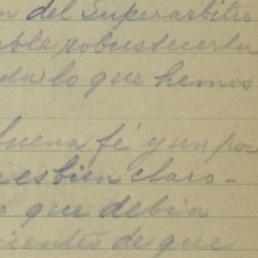 del Superarbitro
able robustecerla
lo que hemos
buena fé y un poc
es bien claro-
que debin
cientes de que